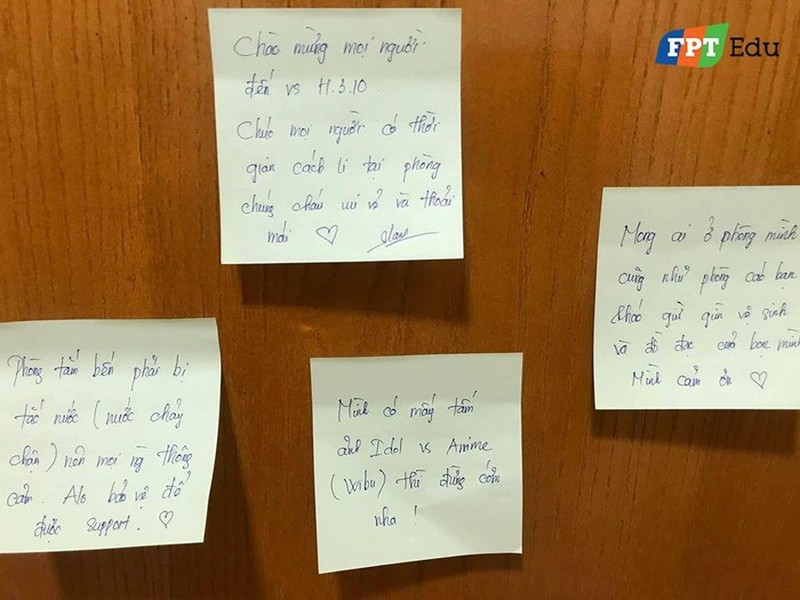 FPT Edu
Chào mừng mọi người
đến vs H.3.10.
Chúc mọi người có thời
gian cách li tại phòng
chúng cháu vui vẻ và thoải
mái ♡
Mong ai ở phòng mình
cũng như phòng các bạn
khác giữ gìn vệ sinh
và đồ đạc của bọn mình
Mình cảm ơn ♡
Phòng tắm bên phải bị
tắc nước (nước chảy
chậm) nên mọi ng thông
cảm. Alo bảo vệ để
được support. ♡
Mình có mấy tấm
ảnh Idol vs Anime
(Wibu) thì đừng
nha !